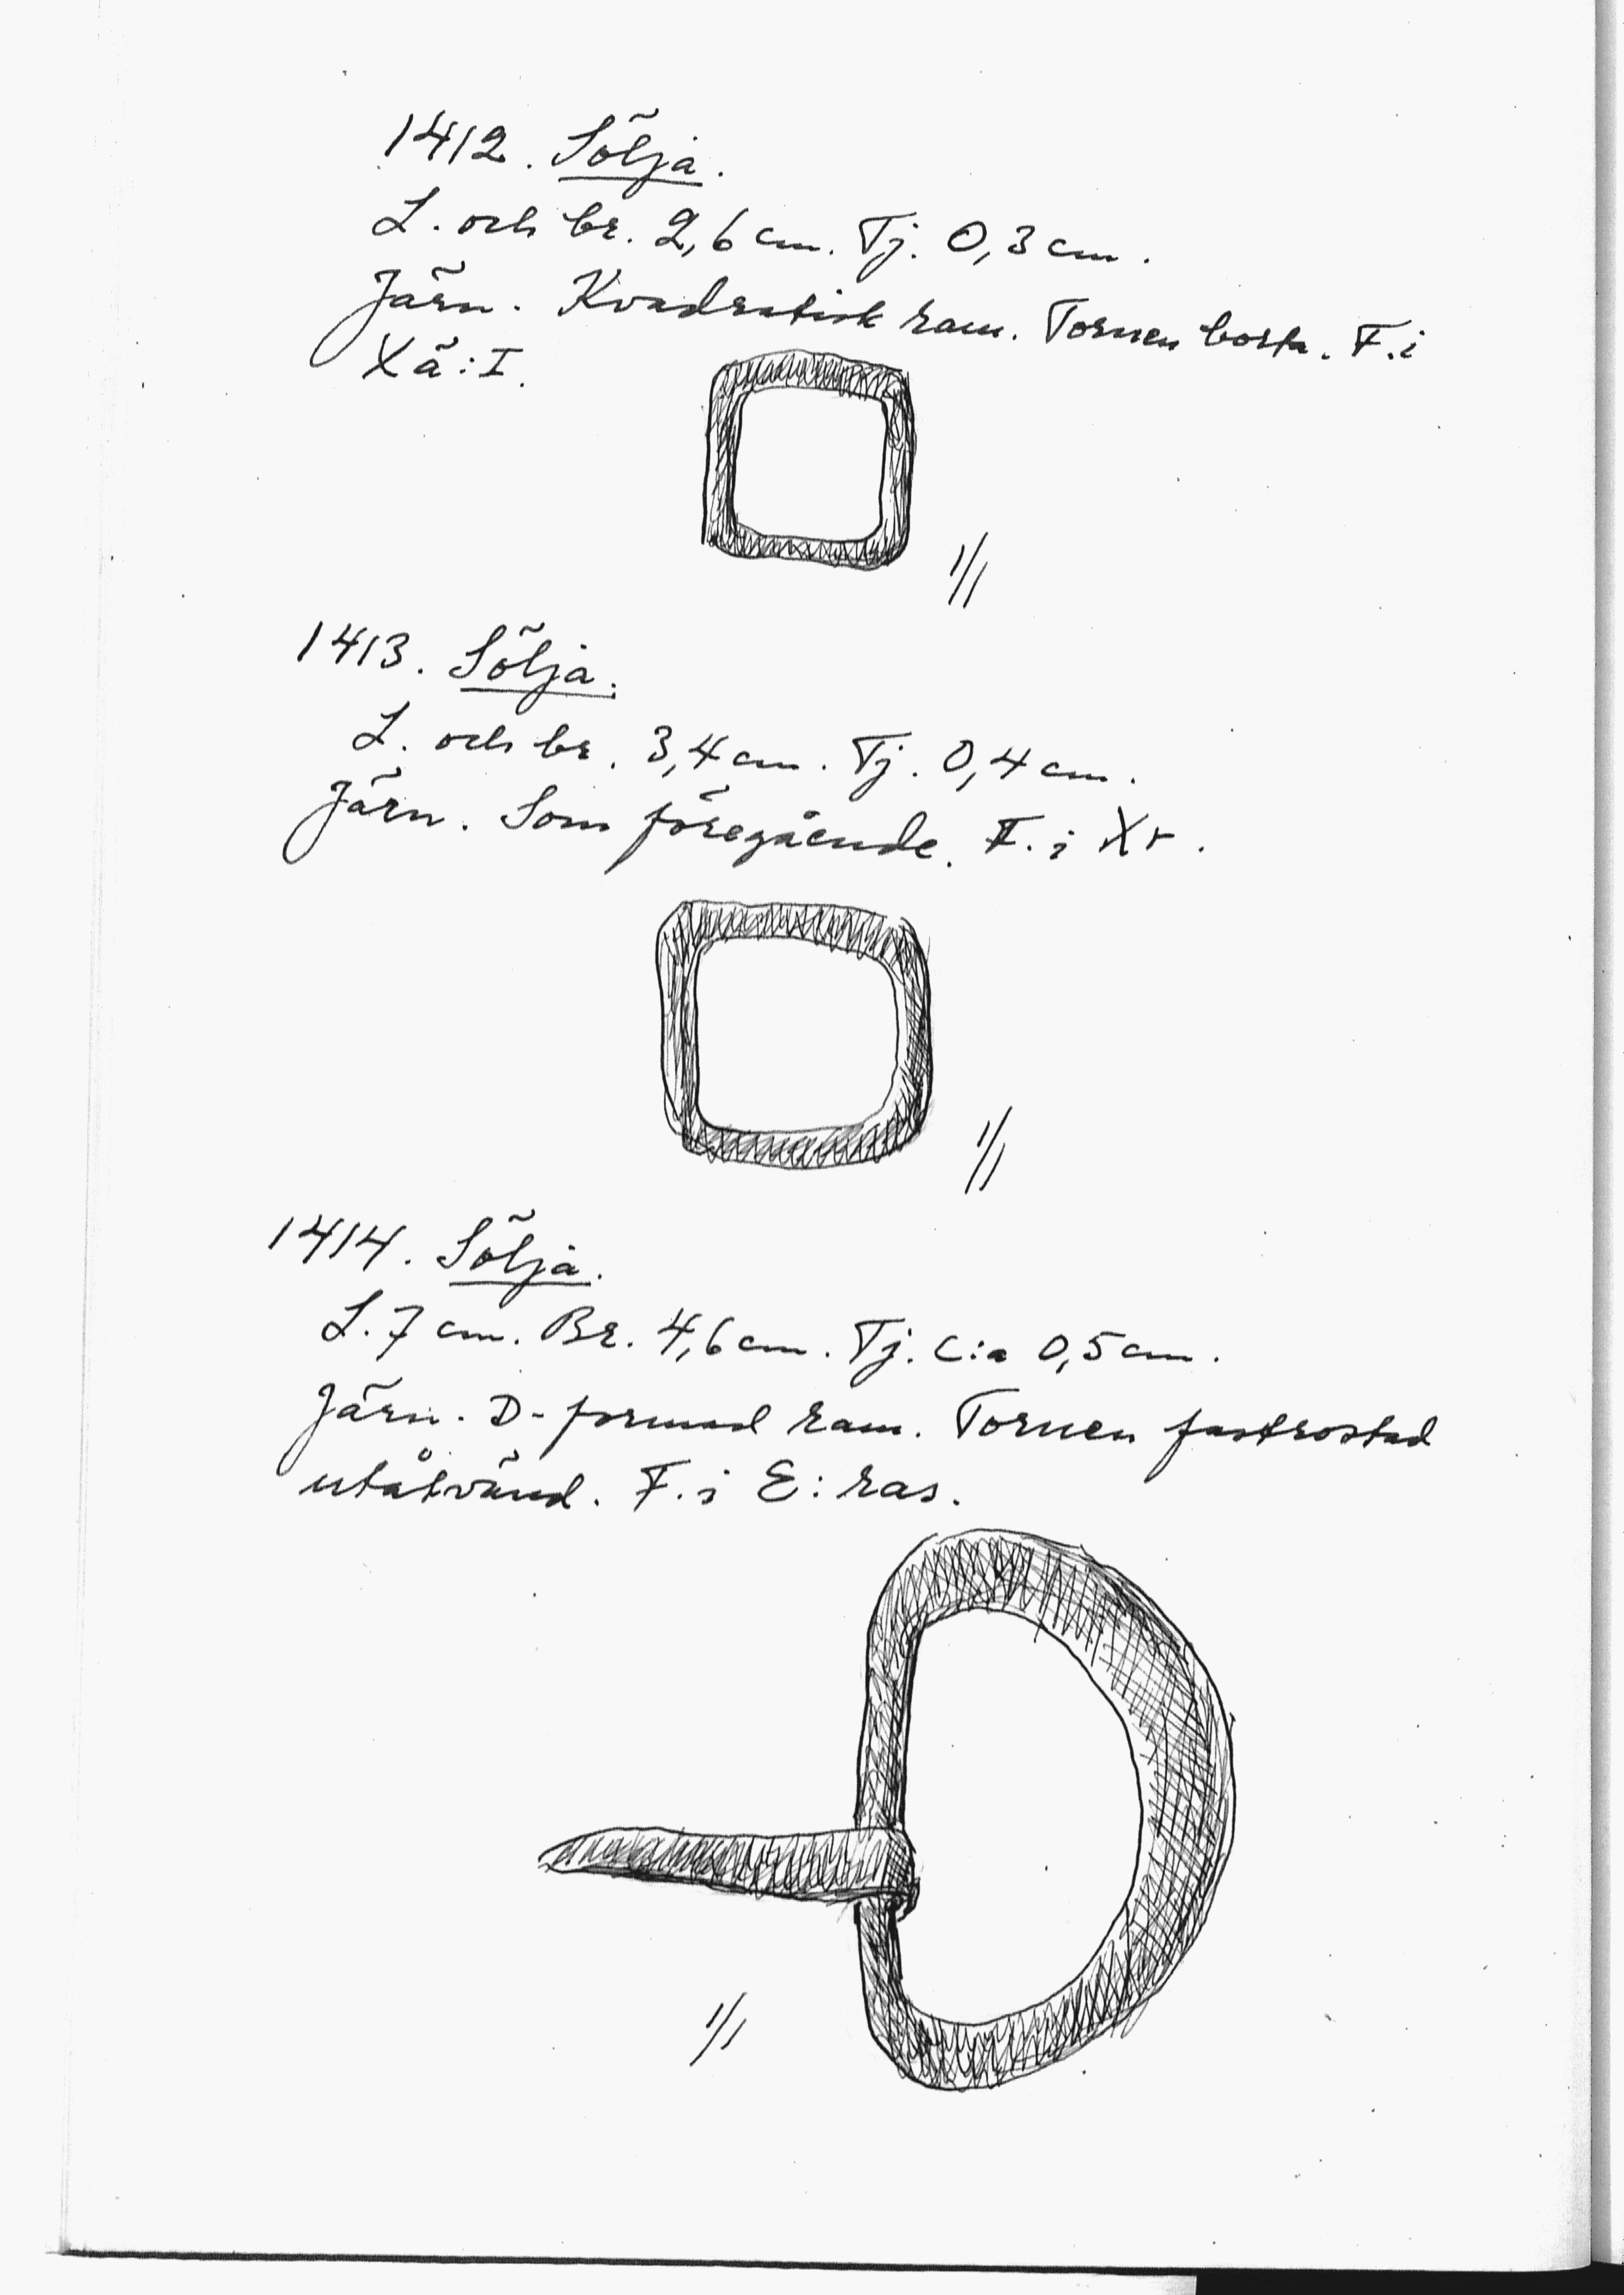 1412. Sölja.
L. och br. 2,6 cm. Tj. 0,3 cm.
Järn. Kvadratisk ram. Tornen borta. F. i
Xä: I.
1/1
1413. Sölja.
L. och br. 3,4 cm. Tj. 0,4 cm.
Järn. Som föregående. F. i Xr.
1/1
1414. Sölja.
L. 7 cm. Br. 4,6 cm. Tj. c:a 0,5 cm.
Järn. D-formad ram. Tornen fastrostad
utåtvänd. F. i E: ras.
1/1